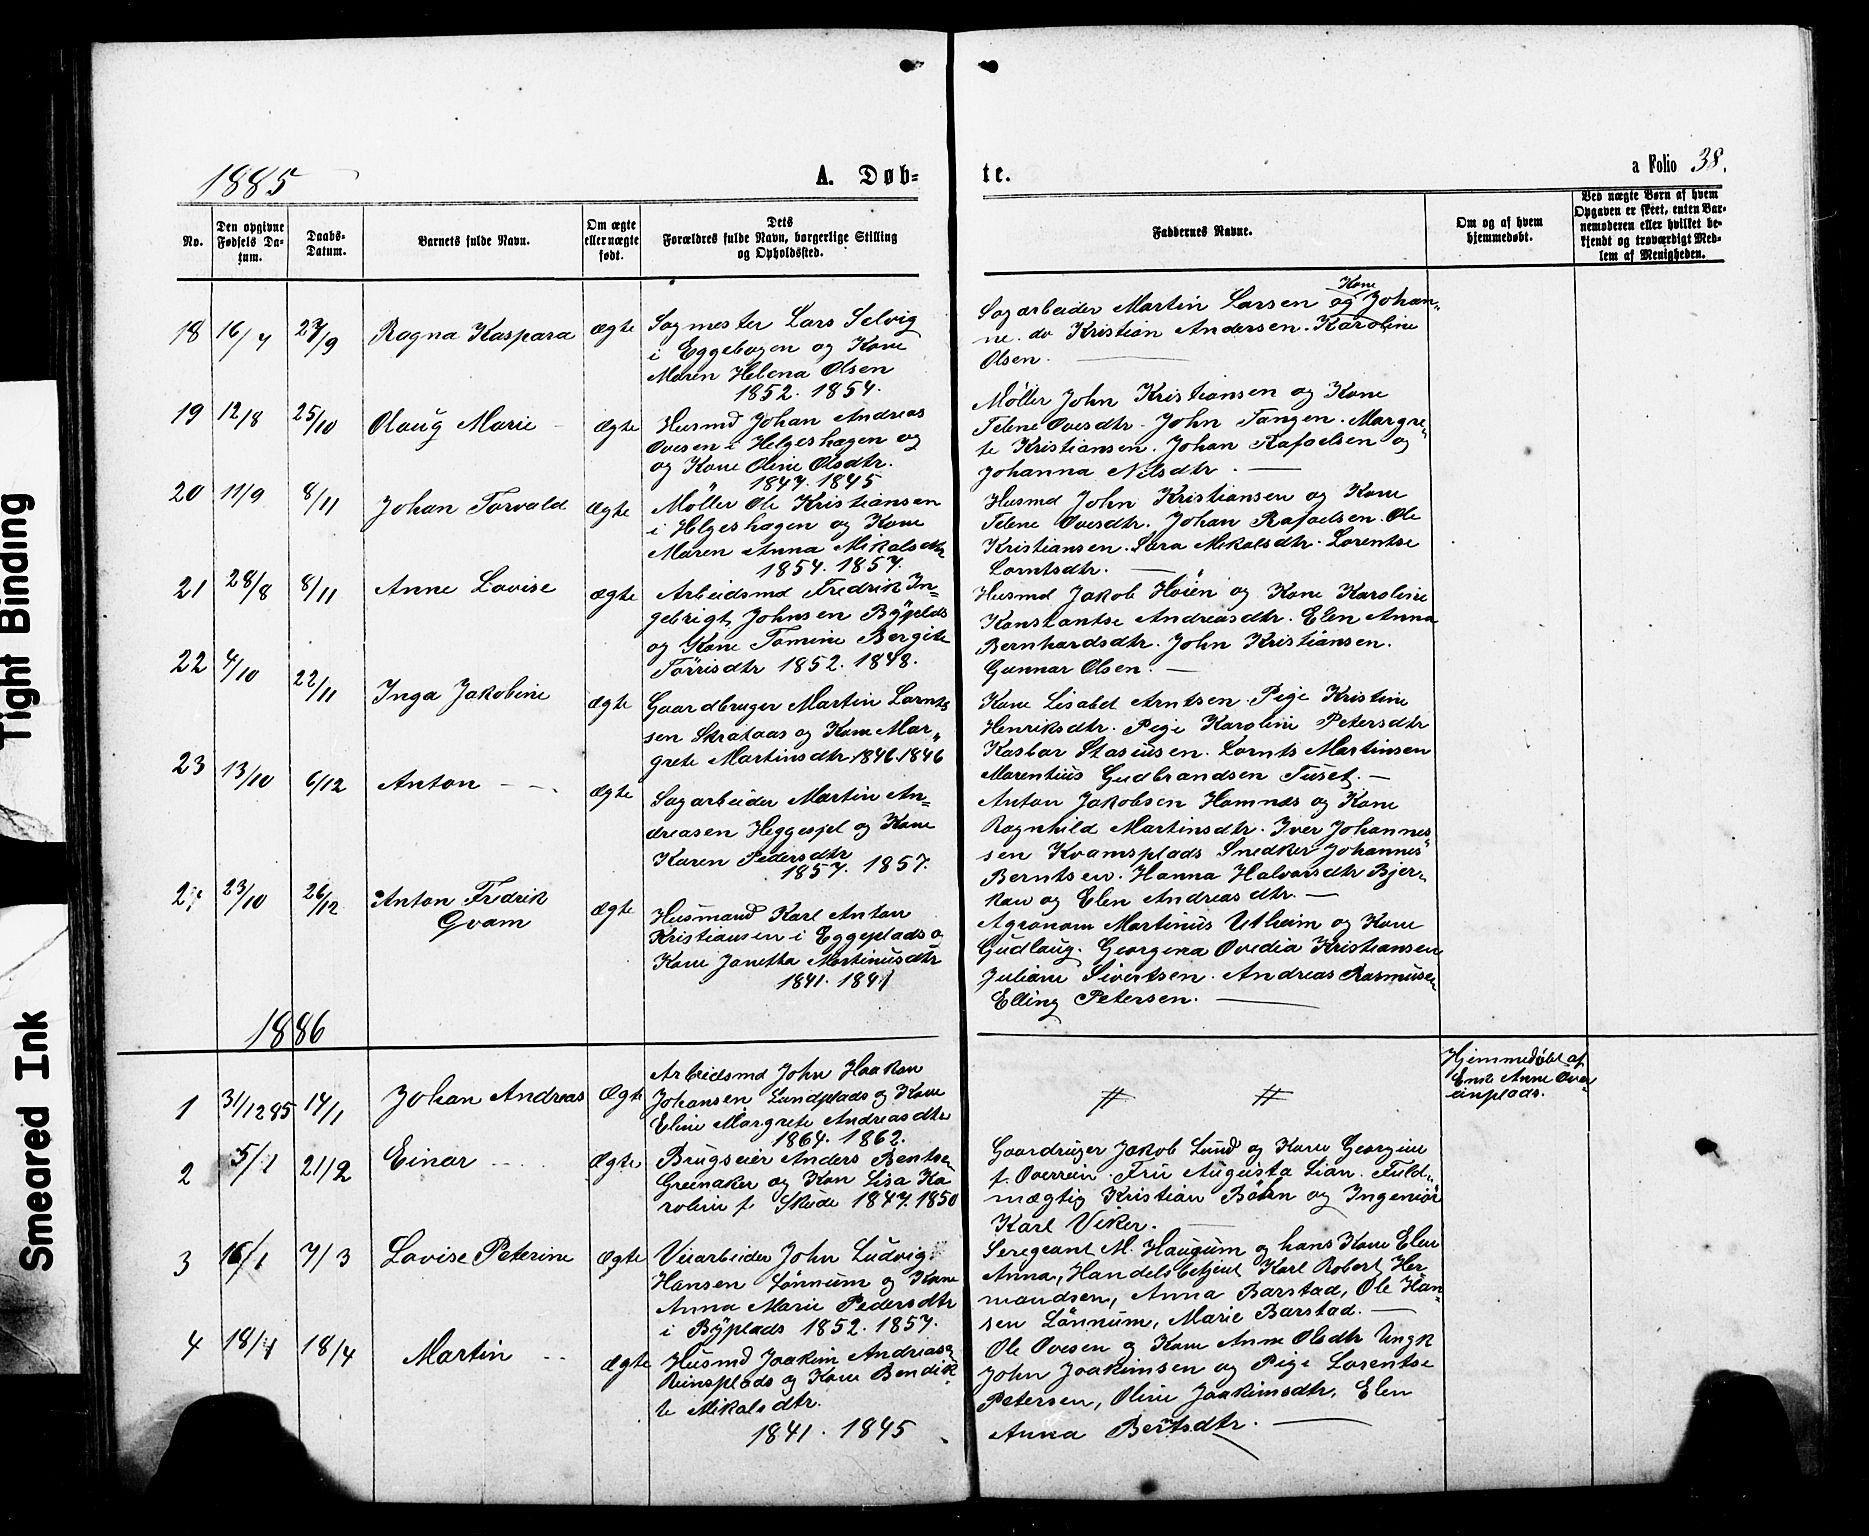 Tight Binding
Smeared Ink
1885
A. Døb-
te.
a Folio 38.
No.
Den opgivne
Fødsels Da-
tum.
Daabs-
Datum.
Barnets fulde Navn.
Om ægte
eller uægte
født.
Dets
Forældres fulde Navn, borgerlige Stilling
og Opholdssted.
Faddernes Navne.
Om og af hvem
hjemmedøbt.
Ved uægte Børn af hvem
Opgaven er skeet, enten Bar-
nemoderen eller hvilket be-
kjendt og troværdigt Med-
lem af Menigheden.
18 16/7 27/9 Ragna Kaspara ægte
Sagmester Lars Selvig
i Eggebogen og Kone
Maren Helena Olsen
1852. 1854.
Kone
Sagarbeider Martin Larsen og Johan-
ne. do Kristian Andersen. Karoline
Olsen.
19 12/8 25/10 Olaug Marie ægte
Husmd Johan Andreas
Ovesen i Helgeshagen og
og Kone Oline Olsdtr.
1847. 1845
Møller John Kristiansen og Kone
Telene Ovesdtr. John Tangen. Margre-
te Kristiansen. Johan Rafaelsen og
Johanna Nilsdtr.
20 11/9 8/11 Johan Torvald ægte
Møller Ole Kristiansen
i Helgeshagen og Kone
Maren Anna Mikalsdtr
1854. 1857.
Husmd John Kristiansen og Kone
Telene Ovesdtr. Johan Rafaelsen. Ole
Kristiansen. Sara Mikalsdtr. Lorentse
Lorntsdtr.
21 28/8 8/11 Anne Lovise ægte
Arbeidsmd Fredrik In-
gebrigt Johnsen Bÿgelds
og Kone Tomine Bergite
Tørrisdtr 1852. 1848.
Husmd Jakob Høien og Kone Karoline
Konstantse Andreasdtr. Elen Anna
Bernhardsdtr. John Kristiansen.
Gunnar Olsen.
22 4/10 22/11 Inga Jakobine ægte
Gaardbruger Martin Lornts
sen Skrataas og Kone Mar-
grete Martinsdtr. 1846. 1846
Kone Lisabet Arntsen. Pige Kristine
Henriksdtr. Pige Karoline Petersdtr
Kasbar Staseusen. Lornts Martinsen
Marentius Gudbrandsen Tuset.
23 13/10 6/12 Anton ægte
Sagarbeider Martin An-
dreasen Heggesjel og Kone
Karen Pedersdtr
1857. 1857.
Anton Jakobsen Hamnes og Kone
Ragnhild Martinsdtr. Iver Johannes
sen Kvamsplads Snedker Johannes
Berntsen. Hanna Halvarsdtr Bjer-
kan og Elen Andreasdtr.
23/10 26/12 Anton Fredrik
Qvam
ægte
Husmand Karl Anton
Kristiansen i Eggeplads o
Kone Janetta Martinusdtr
1841. 1841
Agronom Martinus Utheim og Kone
Gudlaug. Georgina Ovedia Kristiansen
Juliane Sivertsen. Andreas Rasmusen
Elling Petersen.
1886
1 31/12 85 14/1 Johan Andreas Ægte
Arbeidsmd John Haakon
Johansen Lundplads og Kone
Eline Margrete Andreasdtr
1864. 1862.
# #
Hjemmedøbt af
Enke Anne Over
einplads.
2 5/1 21/2 Einar Ægte
Brugseier Anders Bentsen
Greenaker og Kon Lisa Ka
roline f. Skeide 1847. 1850
Gaardruger Jakob Lund og Kone Georgine
f. Overrein. Fru Augusta Lian. Fuld-
mægtig Kristian Børn og Ingeniør
Karl Viker.
3 16/1 7/3 Lovise Peterine ægte
Veiarbeider John Ludvig
Hansen Lønnum og Kone
Anna Marie Pedersdtr
i Bÿplads 1852. 1857.
Seregeant M. Haugum og hans Kone Elen
Anna, Handelsbetjent Karl Robert Her
mandsen, Anna Barstad, Ole Han-
sen Lønnum, Marie Barstad.
4 18/1 18/4 Martin Ægte
Husmd Joakim Andreasen
Reinsplads og Kone Bendik
te Mikalsdtr.
1841. 1845
Ole Ovesen og Kone Anne Olsdtr Ungk
John Joakimsen og Pige Lorentse
Petersen, Oline Joakimsdtr, Elen
Anna Bertsdtr.